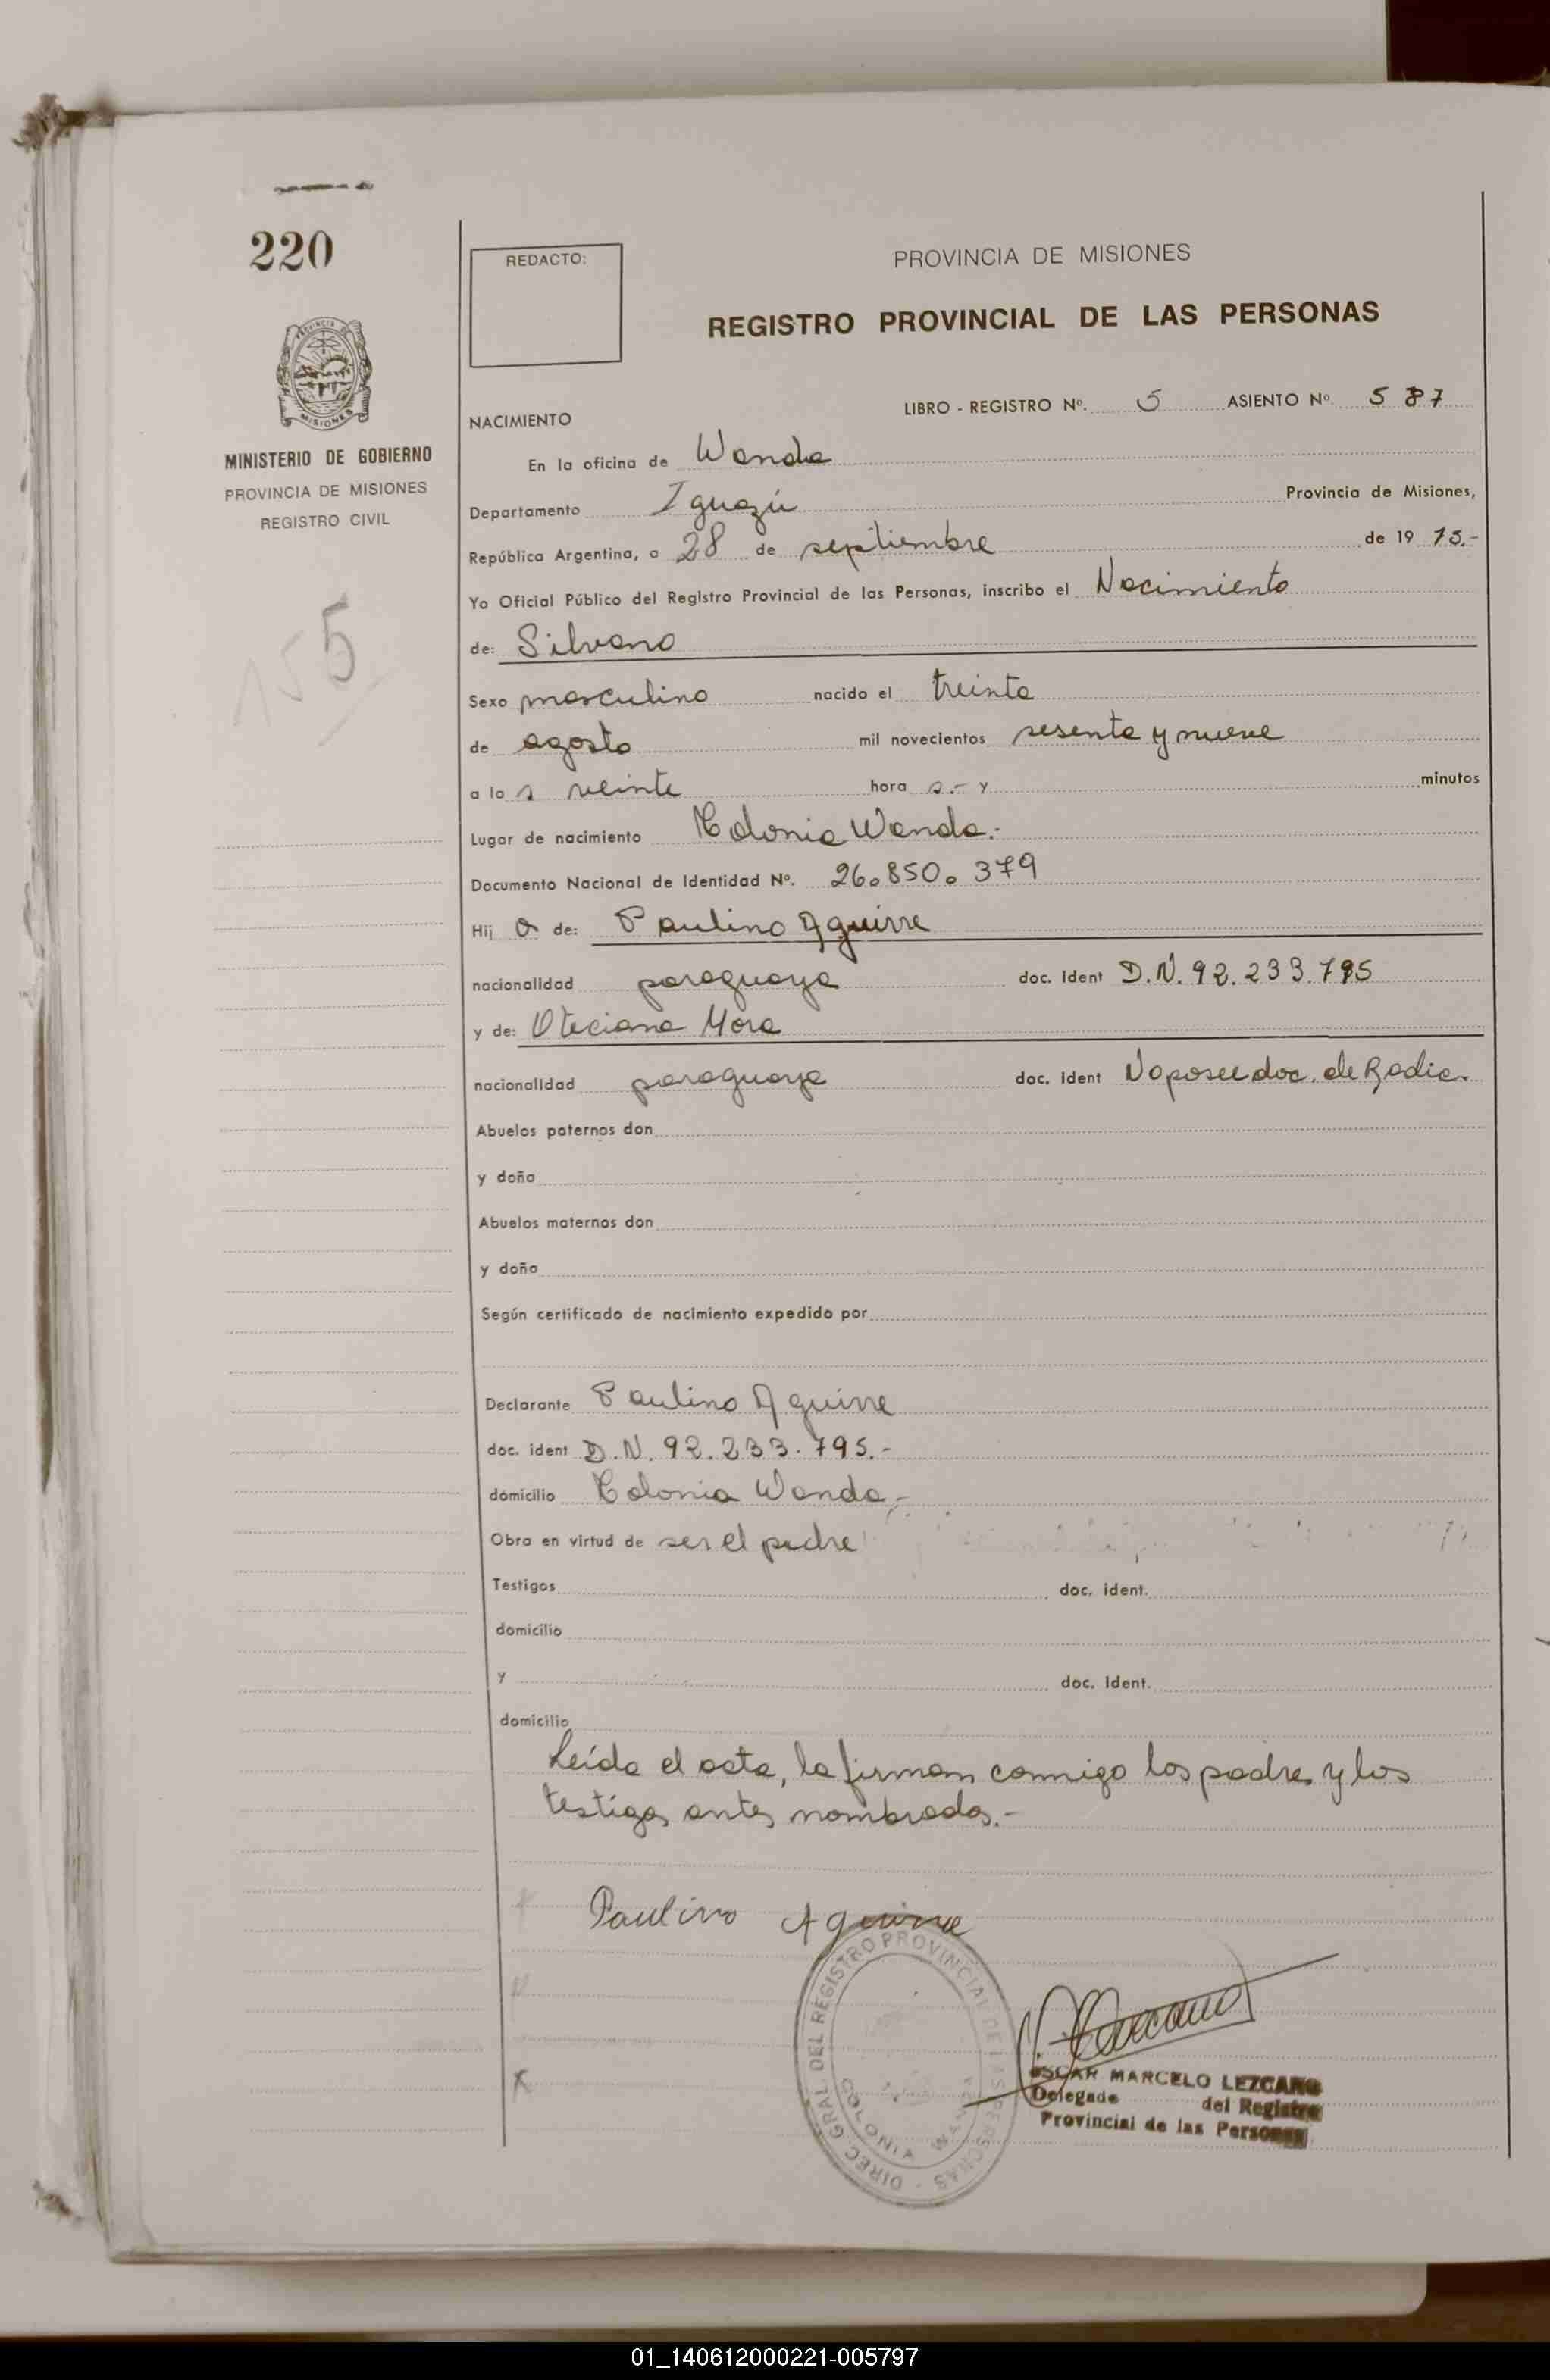 220
REDACTO:
PROVINCIA DE MISIONES
REGISTRO PROVINCIAL DE LAS PERSONAS
MISIONES
MINISTERIO DE GOBIERNO
PROVINCIA DE MISIONES
REGISTRO CIVIL
155
LIBRO - REGISTRO Nº. 5 ASIENTO Nº 587
NACIMIENTO
En la oficina de Wanda
Departamento Iguazú Provincia de Misiones,
República Argentina, a 28 de septiembre de 19 75.-
Yo Oficial Público del Registro Provincial de las Personas, inscribo el Nacimiento
de: Silvano
Sexo masculino nacido el treinta
de agosto mil novecientos sesenta y nueve
a la s veinte hora s.- y minutos
Lugar de nacimiento Colonia Wanda.-
Documento Nacional de Identidad Nº. 26.850.379
Hij o de: Paulino Aguirre
nacionalidad paraguaya doc. ident D.N. 92.233.795
y de: Oteciana Mora
nacionalidad paraguaya doc. ident No posee doc. de Radic.
Abuelos paternos don
y doña
Abuelos maternos don
y doña
Según certificado de nacimiento expedido por
Declarante Paulino Aguirre
doc. ident D.N. 92.233.795.-
domicilio Colonia Wanda.-
Obra en virtud de ser el padre
Testigos doc. ident.
domicilio
y doc. ident.
domicilio
Leída el acta, la firman conmigo los padres y los
testigos antes nombrados.-
Paulino Aguirre
DIREC. GRAL. DEL REGISTRO PROVINCIAL DE LAS PERSONAS
COLONIA WANDA
OSCAR MARCELO LEZCANO
Delegado del Registro
Provincial de las Personas
01_140612000221-005797